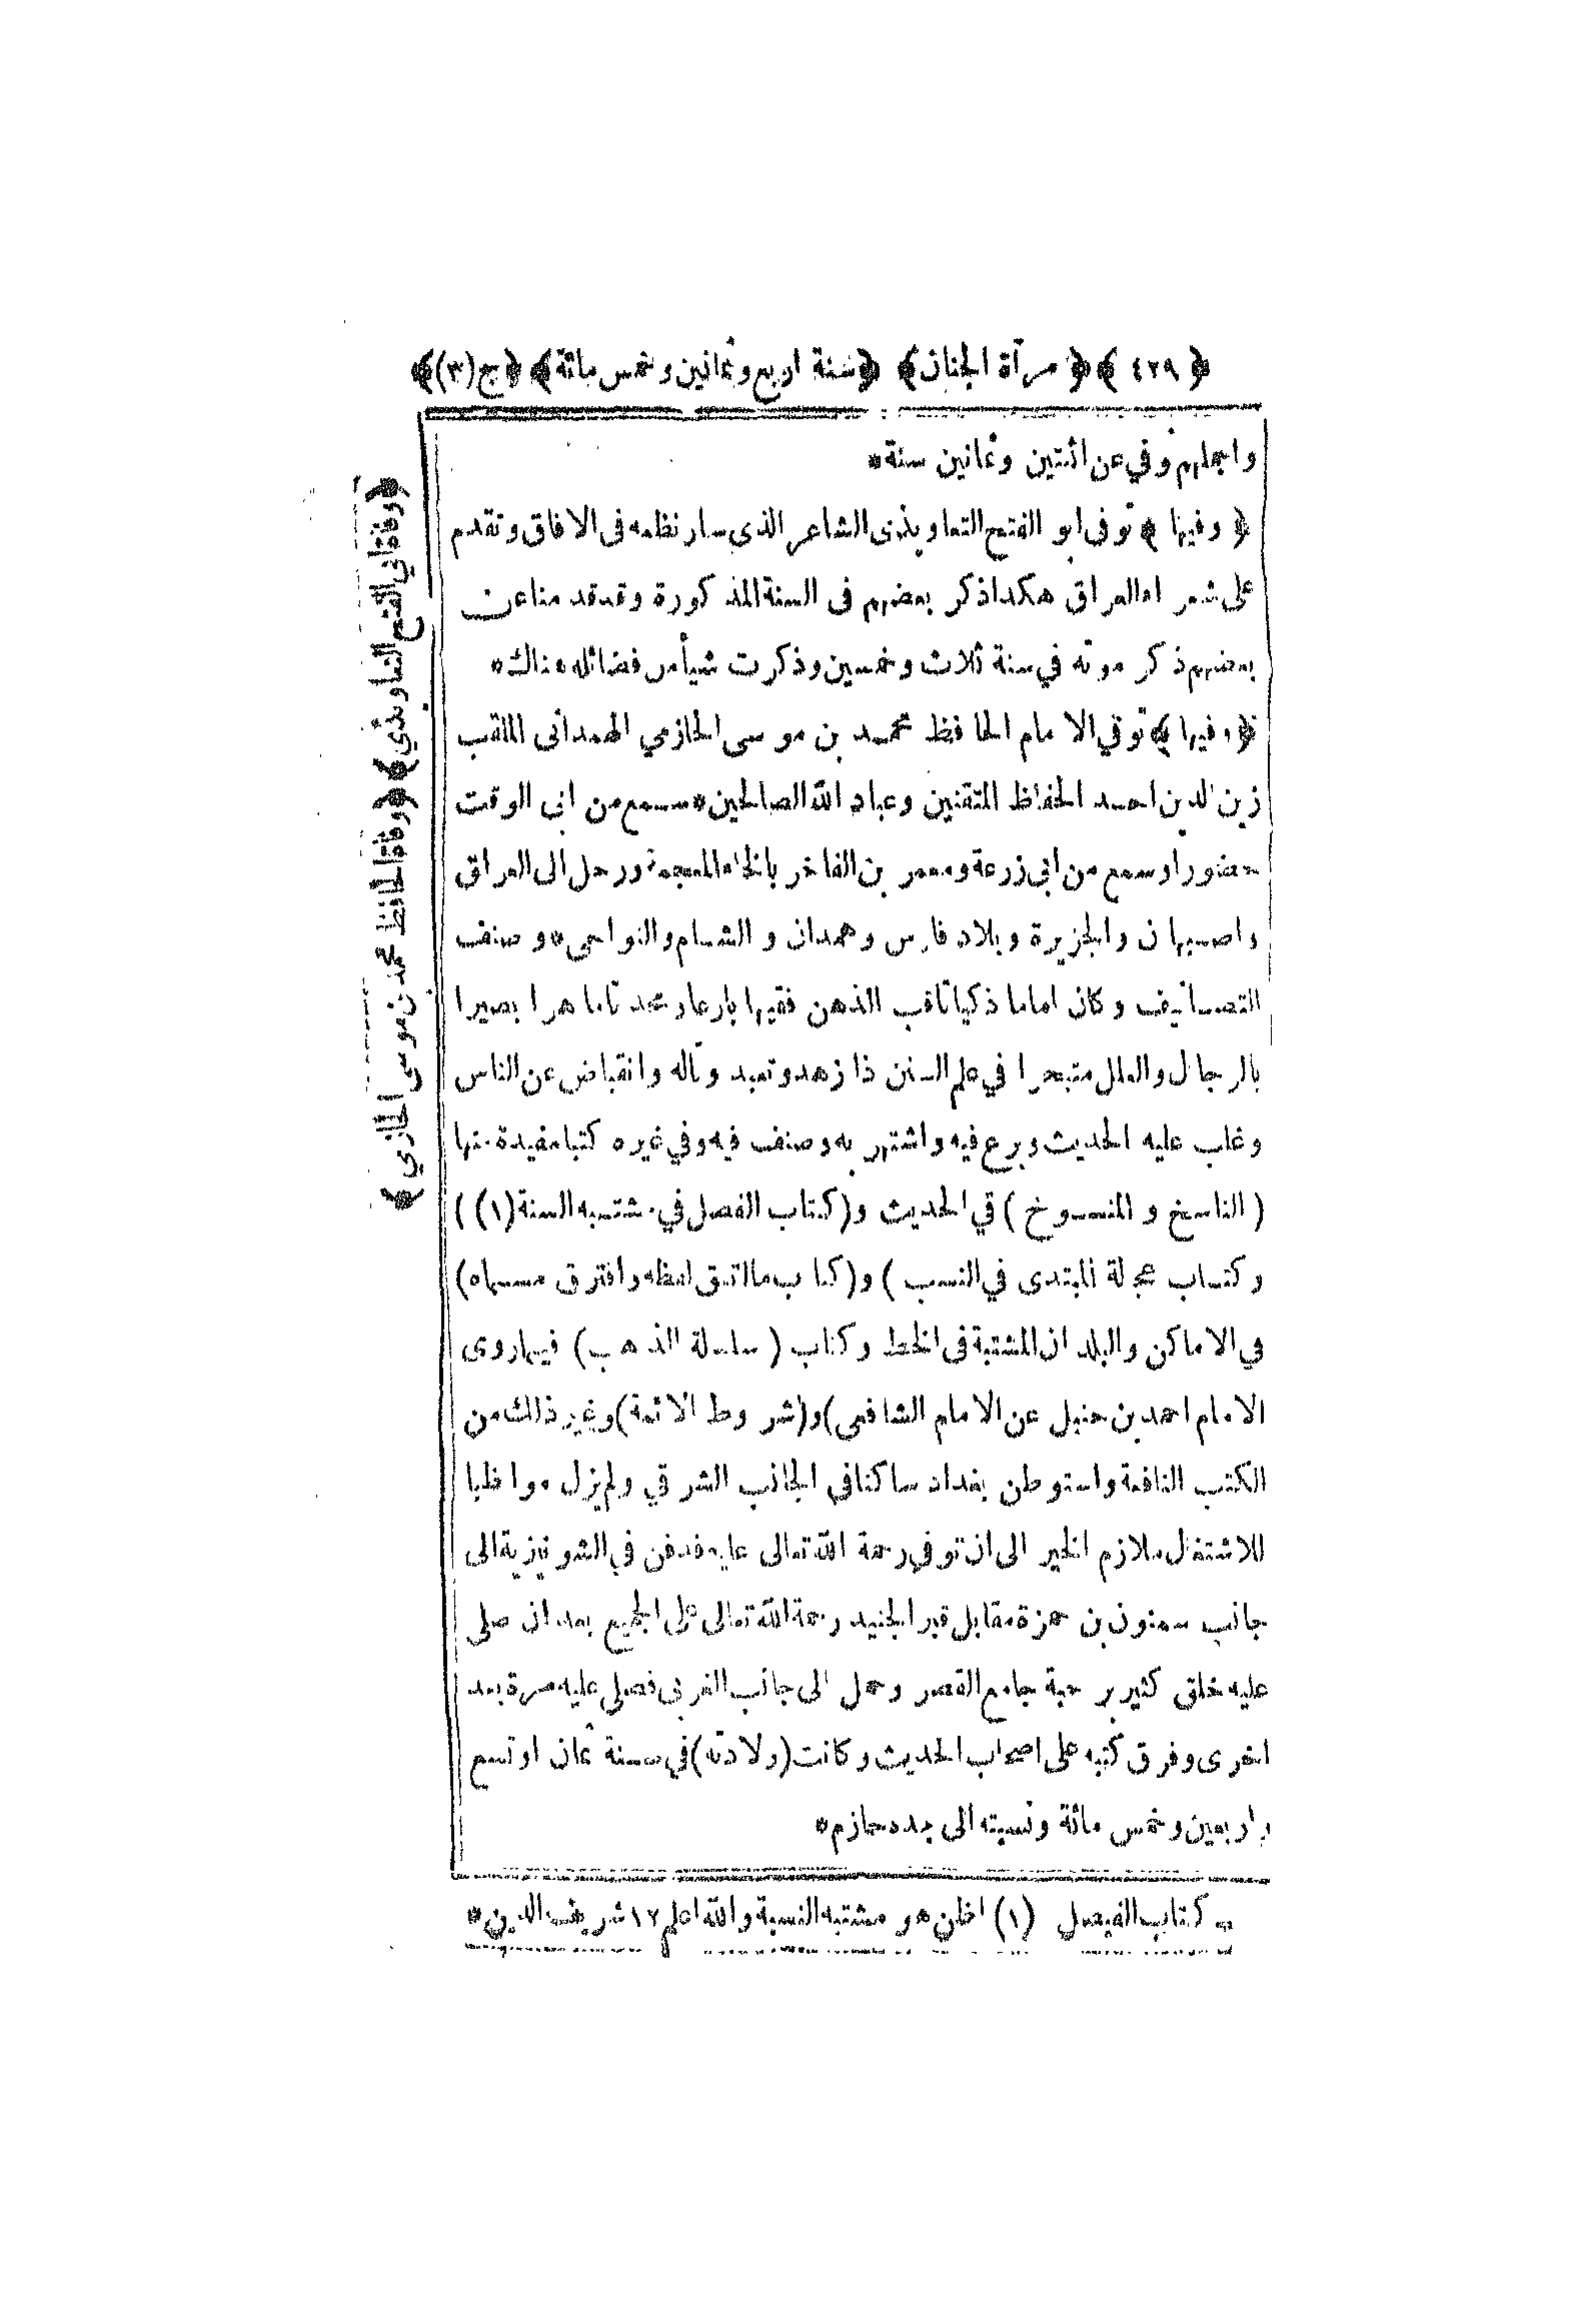 ﴿ ٤٢٩ ﴾ ﴿ مرآة الجنان ﴾ ﴿ سنة اربع وثمانين وخمس مائة ﴾ ﴿ ج (٣) ﴾
واجملهم وفي عن اثنتين وثمانين سنة *
﴿ وفيها ﴾ توفى ابو الفتح التعاويذى الشاعر الذى سار نظمه فى الافاق وتقدم
على شعراء العراق هكذا ذكر بعضهم فى السنة المذكورة وقد قدمنا عن
بعضهم ذكر موته في سنة ثلاث وخمسين وذكرت شيأ من فضائله هناك *
﴿ وفيها ﴾ توفي الامام الحافظ محمد بن موسى الحازمي الهمدانى الملقب
زين الدين احد الحفاظ المتقنين وعباد الله الصالحين * سمع من ابى الوقت
حضورا وسمع من ابى زرعة ومعمر بن الفاخر بالخاء المعجمة ورحل الى العراق
واصبهان والجزيرة وبلاد فارس وهمدان والشام والنواحى * وصنف
التصانيف وكان اماما ذكيا ثاقب الذهن فقيها بارعا ومحدثا ماهرا بصيرا
بالرجال والعلل متبحرا في علم السنن ذا زهد وتعبد وتأله وانقباض عن الناس
وغلب عليه الحديث وبرع فيه واشتهر به وصنف فيه وفي غيره كتبا مفيدة منها
( الناسخ والمنسوخ ) في الحديث و(كتاب الفصل في مشتبه السنة (١) )
وكتاب عجالة المبتدى في النسب ) و(كتاب ما اتفق لفظه وافترق مسماه)
في الاماكن والبلدان المشتبة فى الخط وكتاب ( سلسلة الذهب) فيما روى
الامام احمد بن حنبل عن الامام الشافعى) و(شروط الائمة) وغير ذلك من
الكتب النافعة واستوطن بغداد ساكنا فى الجانب الشرقي ولم يزل مواظبا
للاشتغال ملازم الخير الى ان توفي رحمة الله تعالى عليه فدفن في الشونيزية الى
جانب سمنون بن حمزة مقابل قبر الجنيد رحمة الله تعالى على الجميع بعد ان صلى
عليه خلق كثير برحبة جامع القصر وحمل الى جانب الغربى فصلى عليه مرة بعد
اخرى وفرق كتبه على اصحاب الحديث وكانت (ولادته) في سنة ثمان او تسع
واربعين وخمس مائة ونسبته الى جده حازم *
كتاب الفيصل (١) اظن هو مشتبه النسبة والله اعلم ١٢ شريف الدين *
﴿ وفاة ابي الفتح التعاويذي ﴾ ﴿ وفاة الحافظ محمد بن موسى الحازمي ﴾